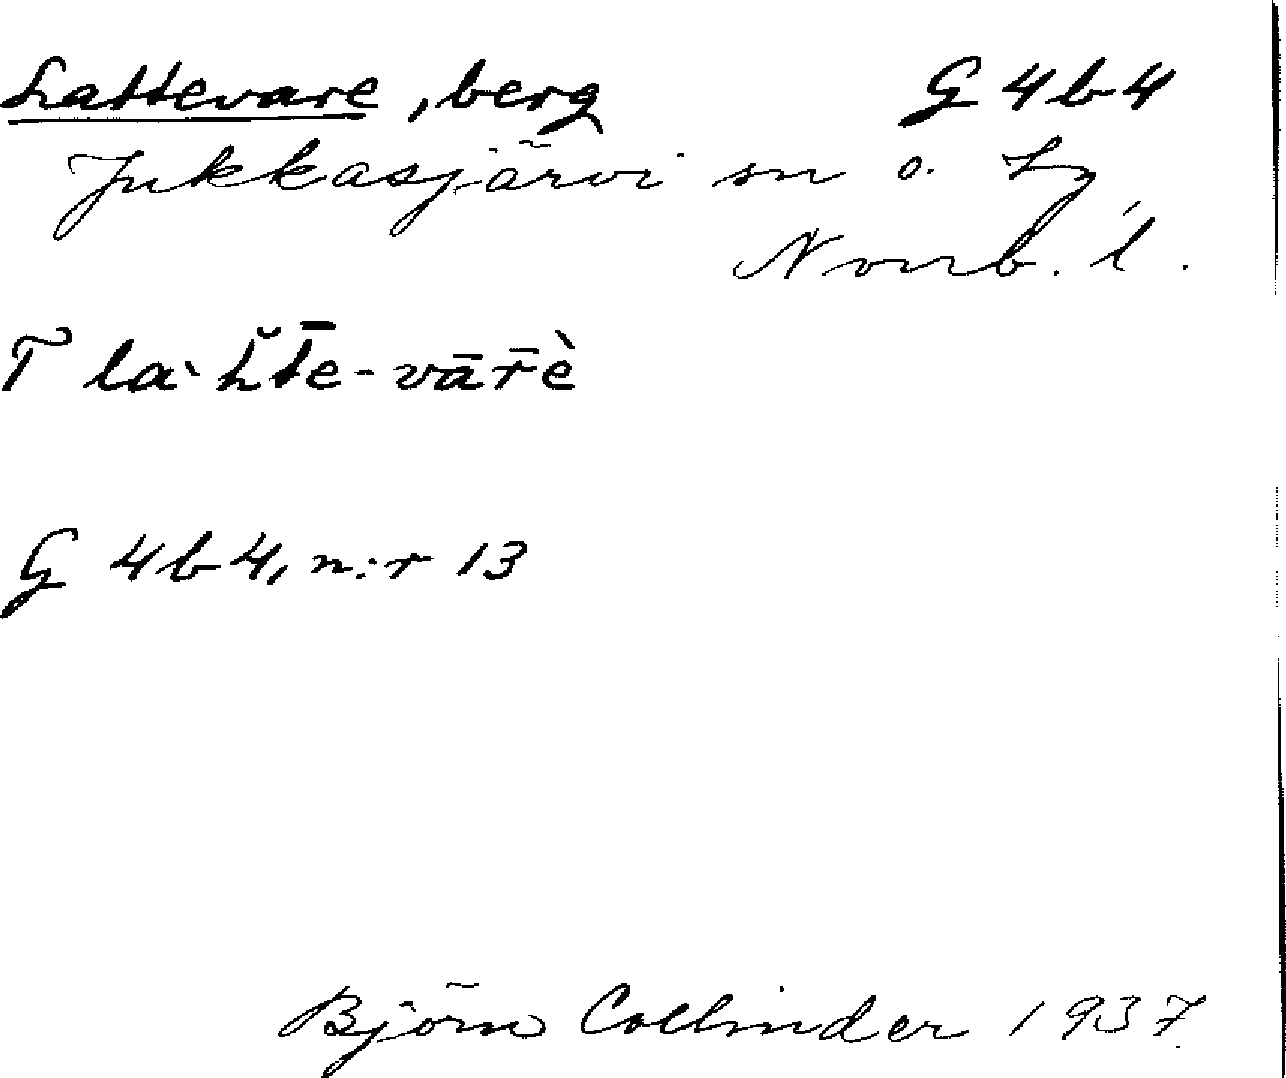 Lattevare, berg G 4 b 4
Jukkasjärvi sn o. Lg
Norrb. l.
T
G 4 b 4, n:r 13
Björn Collinder 1937